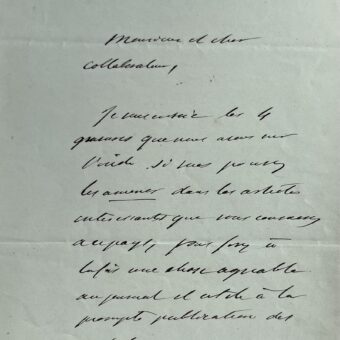 Monsieur et cher
collaborateur,
Je vous envoie les 4
gravures que nous avons sur
l'Inde. Si vous pouvez
les amener dans les articles
intéressants que vous consacrez
au pays, vous ferez à
la fois une chose agréable
au journal et utile à la
prompte publication des